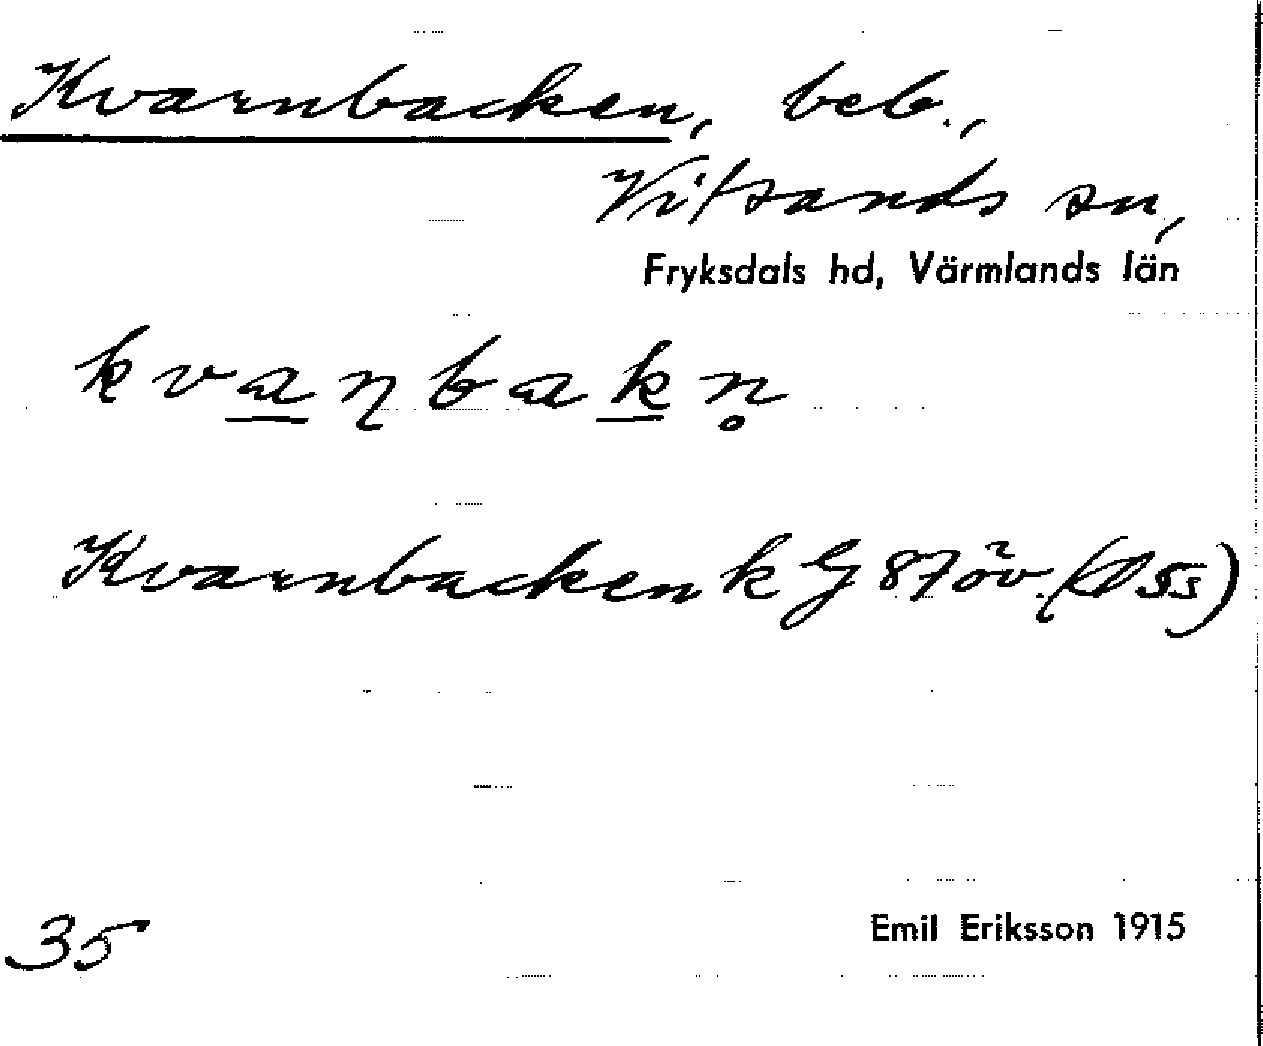 Kvarnbacken, beb.,
Vitsands sn,
Fryksdals hd, Värmlands län
kva̲ɳbak̲n̥
Kvarnbacken k G 87 öv. (O 5s)
35
Emil Eriksson 1915